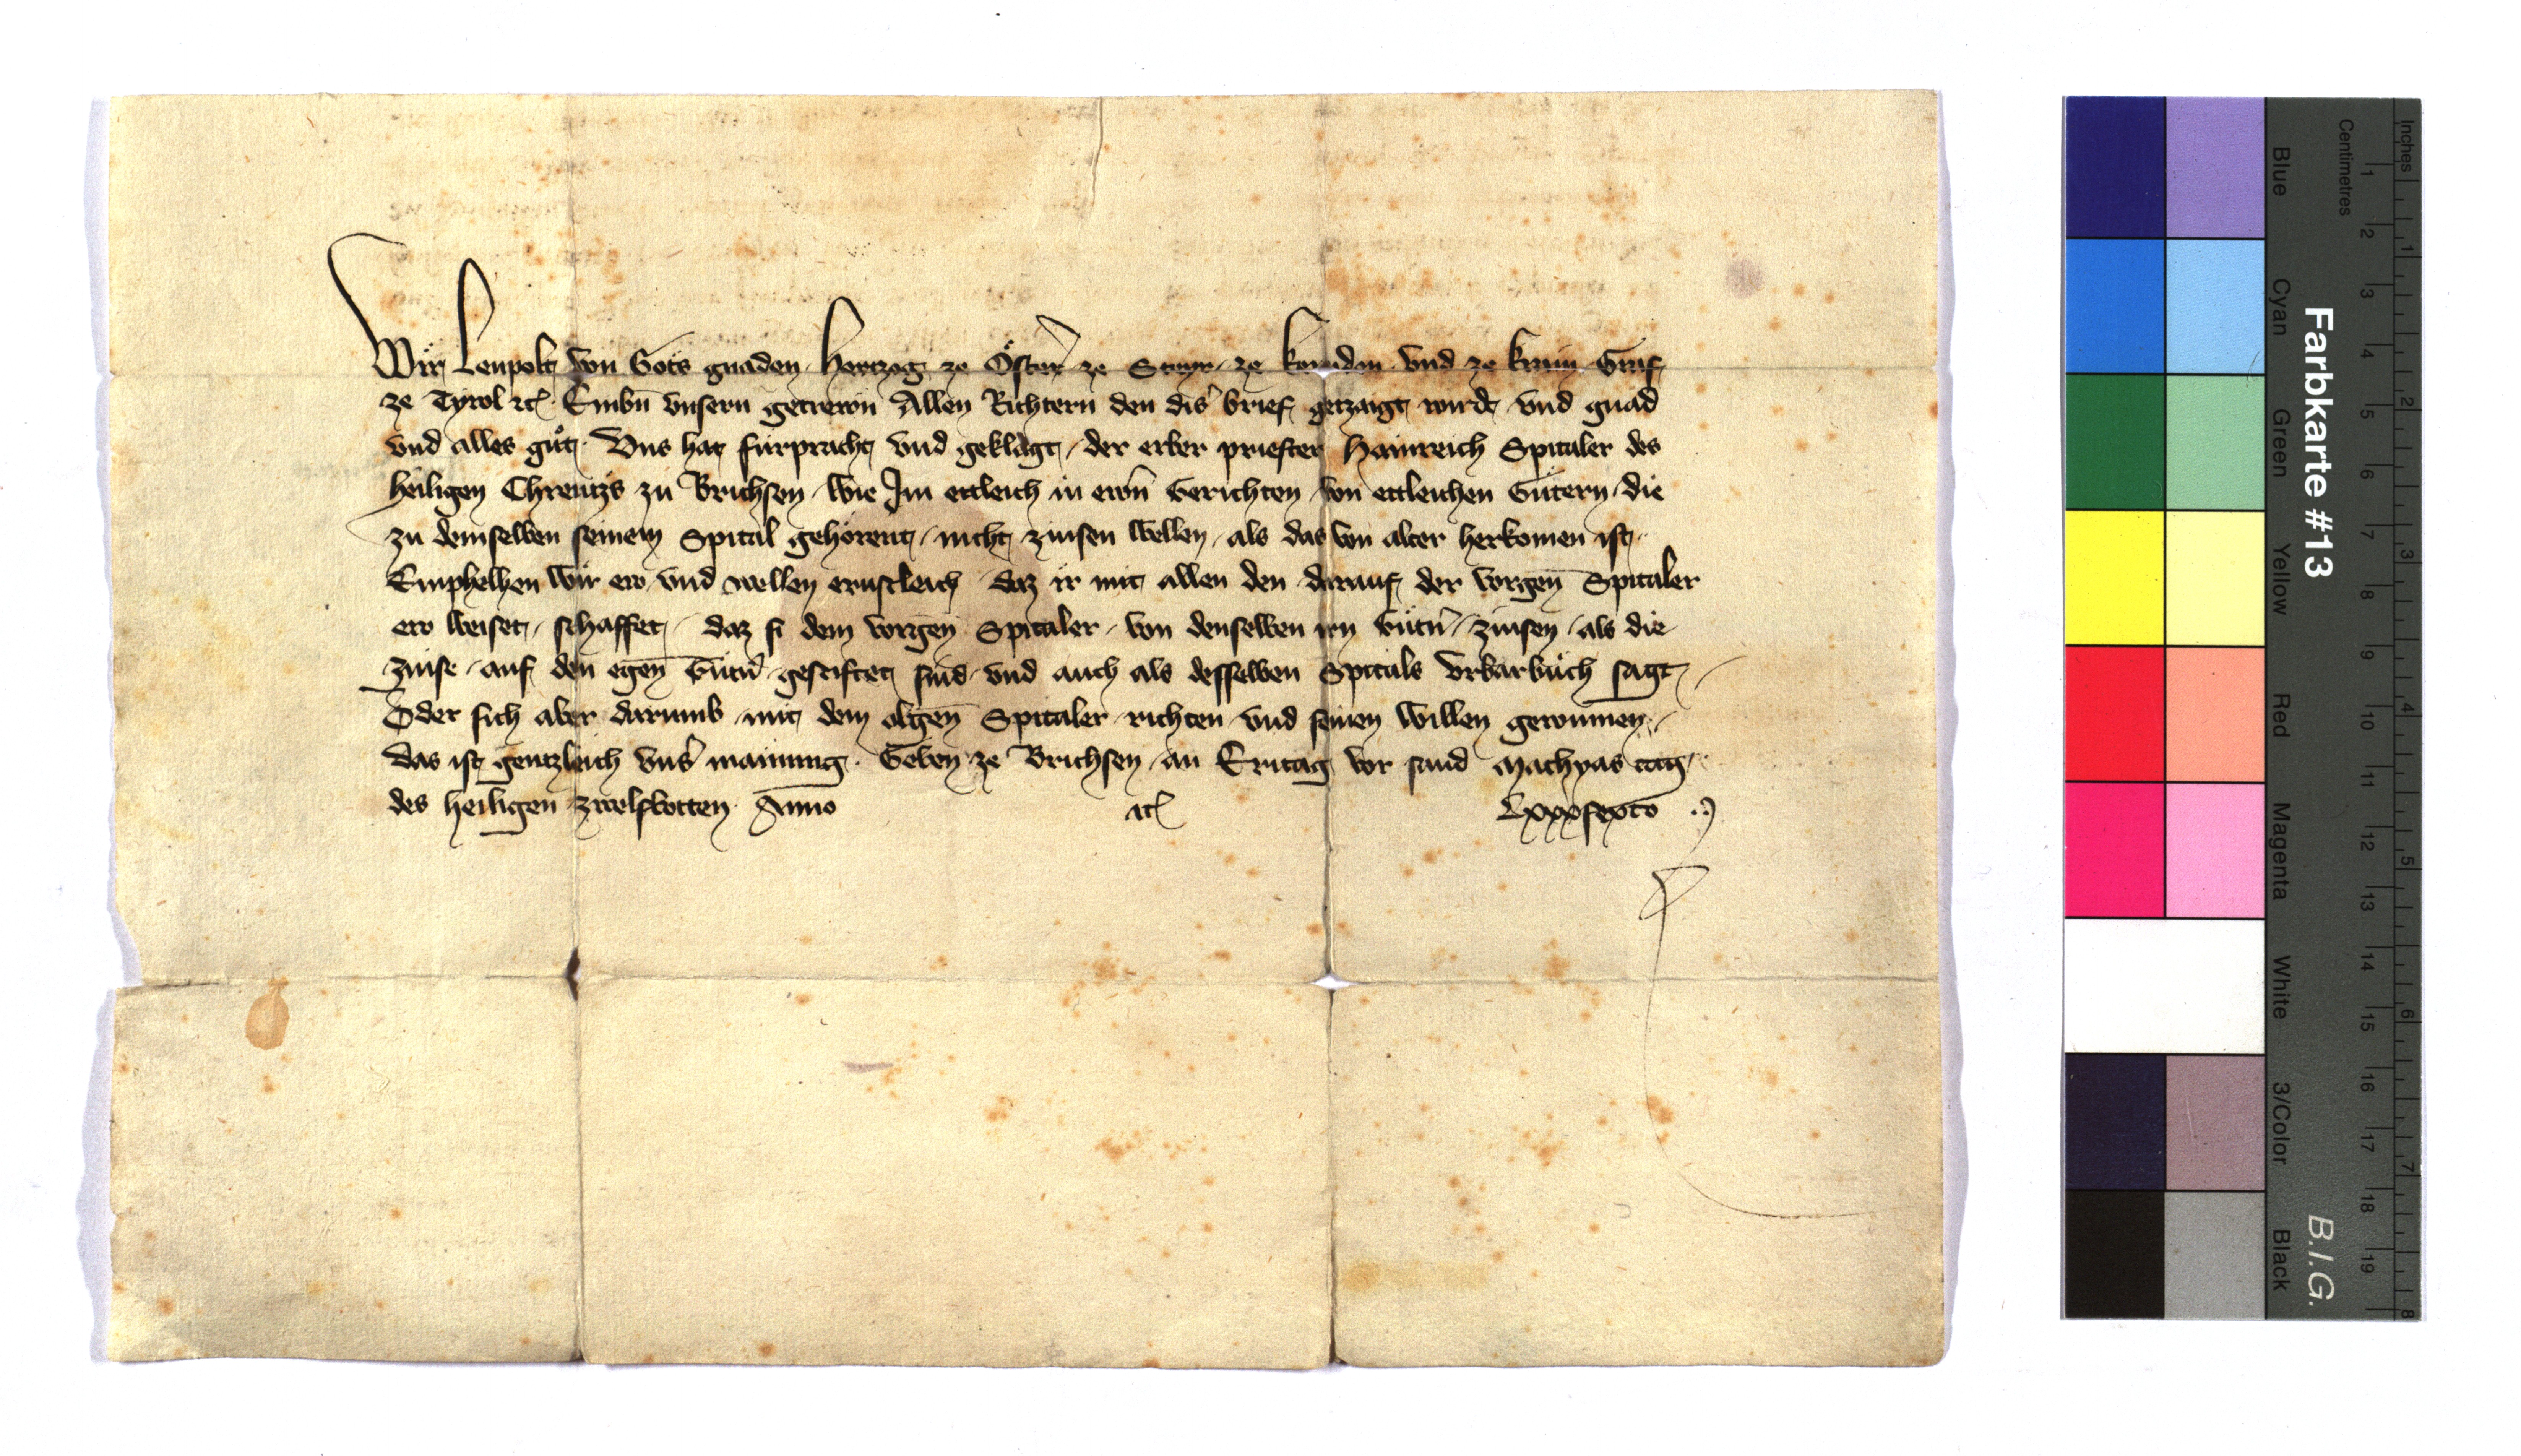 Wir Leupolt von Gots gnaden Hertzog ze Öster̄ ze Steyr ze Kernden vnd ze Krain Graf
ze Tyrol ⁊c̄ Embn̄ vnsern getrewn Allen Richtern den dis̄ brief getzaigt wirdt vnd gnad
vnd alles gůt. Vns hat fürpracht vnd geklagt / der erber priester Hainreich Spitaler des
heiligen Chreutzs zu Brichsen / wie Im ettleich in ewrn̄ Gerichten / von ettleichen Gütern / die
zu demselben seinem Spital gehörent / nicht zinsen wellen / als das von alter herkomen ist.
Emphelhen wir ew vnd wellen ernstleich daz ir mit allen den darauf der vorgen̄ Spitaler
ew weiset / schaffet / daz si dem vorgen̄ Spitaler / von denselben irn Gütn̄ / zinsen / als die
zinse / auf den egen̄ Gütn̄ gestiftet sind / vnd auch als desselben Spitals vrbarbůch sagt /
Oder sich aber darumb mit dem obgen̄ Spitaler richten vnd seinen willen gewinnen /
das ist gentzleich vns̄ mainung. Geben ze Brichsen / an Eritag vor sand Mathyas tag
des heiligen zwelfbotten Anno ⁊c̄ Lxxxsexto
Inches
Centimetres
1 2 3 4 5 6 7 8
1 2 3 4 5 6 7 8 9 10 11 12 13 14 15 16 17 18 19
Farbkarte #13
B.I.G.
Blue Cyan Green Yellow Red Magenta White 3/Color Black